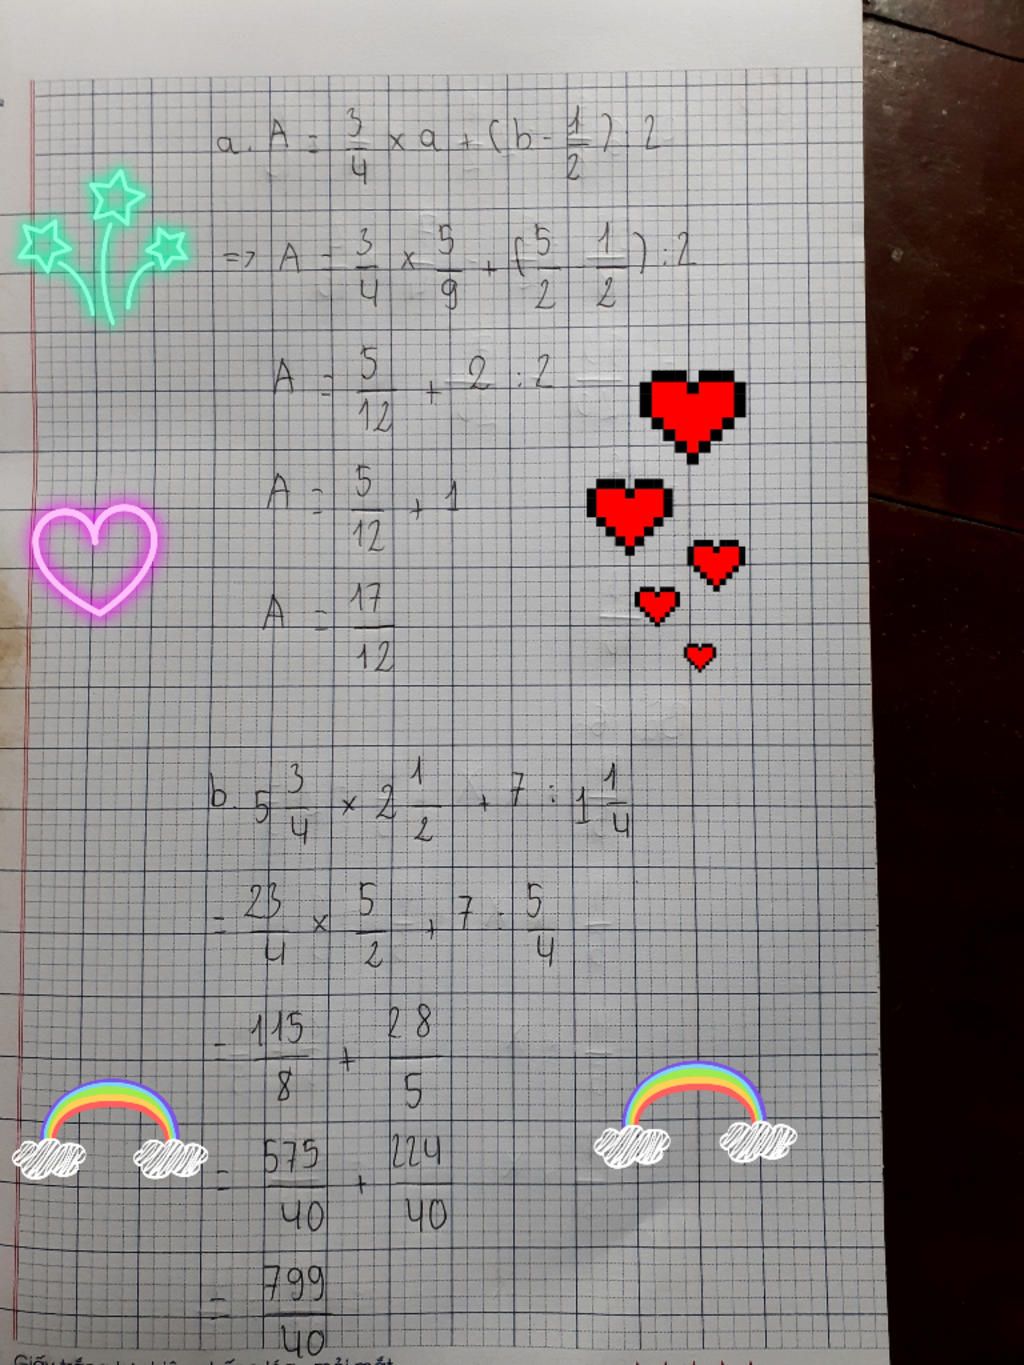 a. A = 3/4 × a + (b - 1/2) : 2
=> A = 3/4 × 5/9 + (5/2 - 1/2) : 2
A = 5/12 + 2 : 2
A = 5/12 + 1
A = 17/12
b. 5 3/4 × 2 1/2 + 7 : 1 1/4
= 23/4 × 5/2 + 7 : 5/4
= 115/8 + 28/5
= 575/40 + 224/40
= 799/40